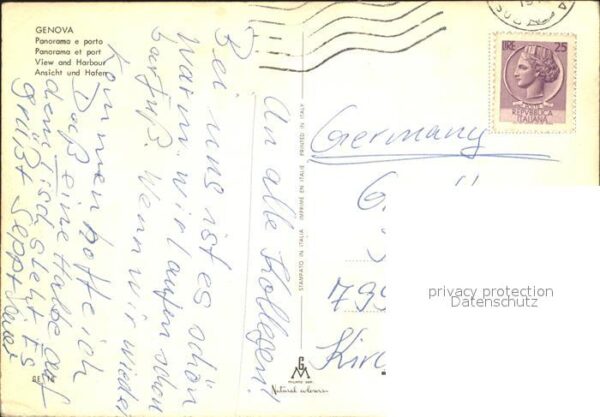 GENOVA
Panorama e porto
Panorama et port
View and Harbour
Ansicht und Hafen
An alle Kollegen!
Bei uns ist es schön
warm. wir laufen schon
barfuß. Wenn wir wieder
kommen hoffe ich
Daß eine Halbe auf
dem Tisch steht. Es
grüßt Sepp
STAMPATO IN ITALIA IMPRIMÉ EN ITALIE PRINTED IN ITALY
MILANO
Natural colours
LIRE 25
REPVBBLICA
ITALIANA
Germany
799
Kirc
privacy protection
Datenschutz